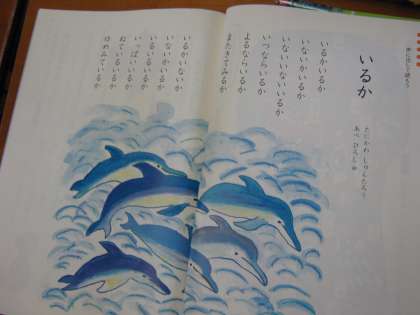 声に出して読もう
いるか
たにかわ しゅんたろう
あべ ひろし 絵
いるかいるか
いないかいるか
いないいないいるか
いつならいるか
よるならいるか
またきてみるか
いるかいないか
いないかいるか
いるいるいるか
いっぱいいるか
ねているいるか
ゆめみているか